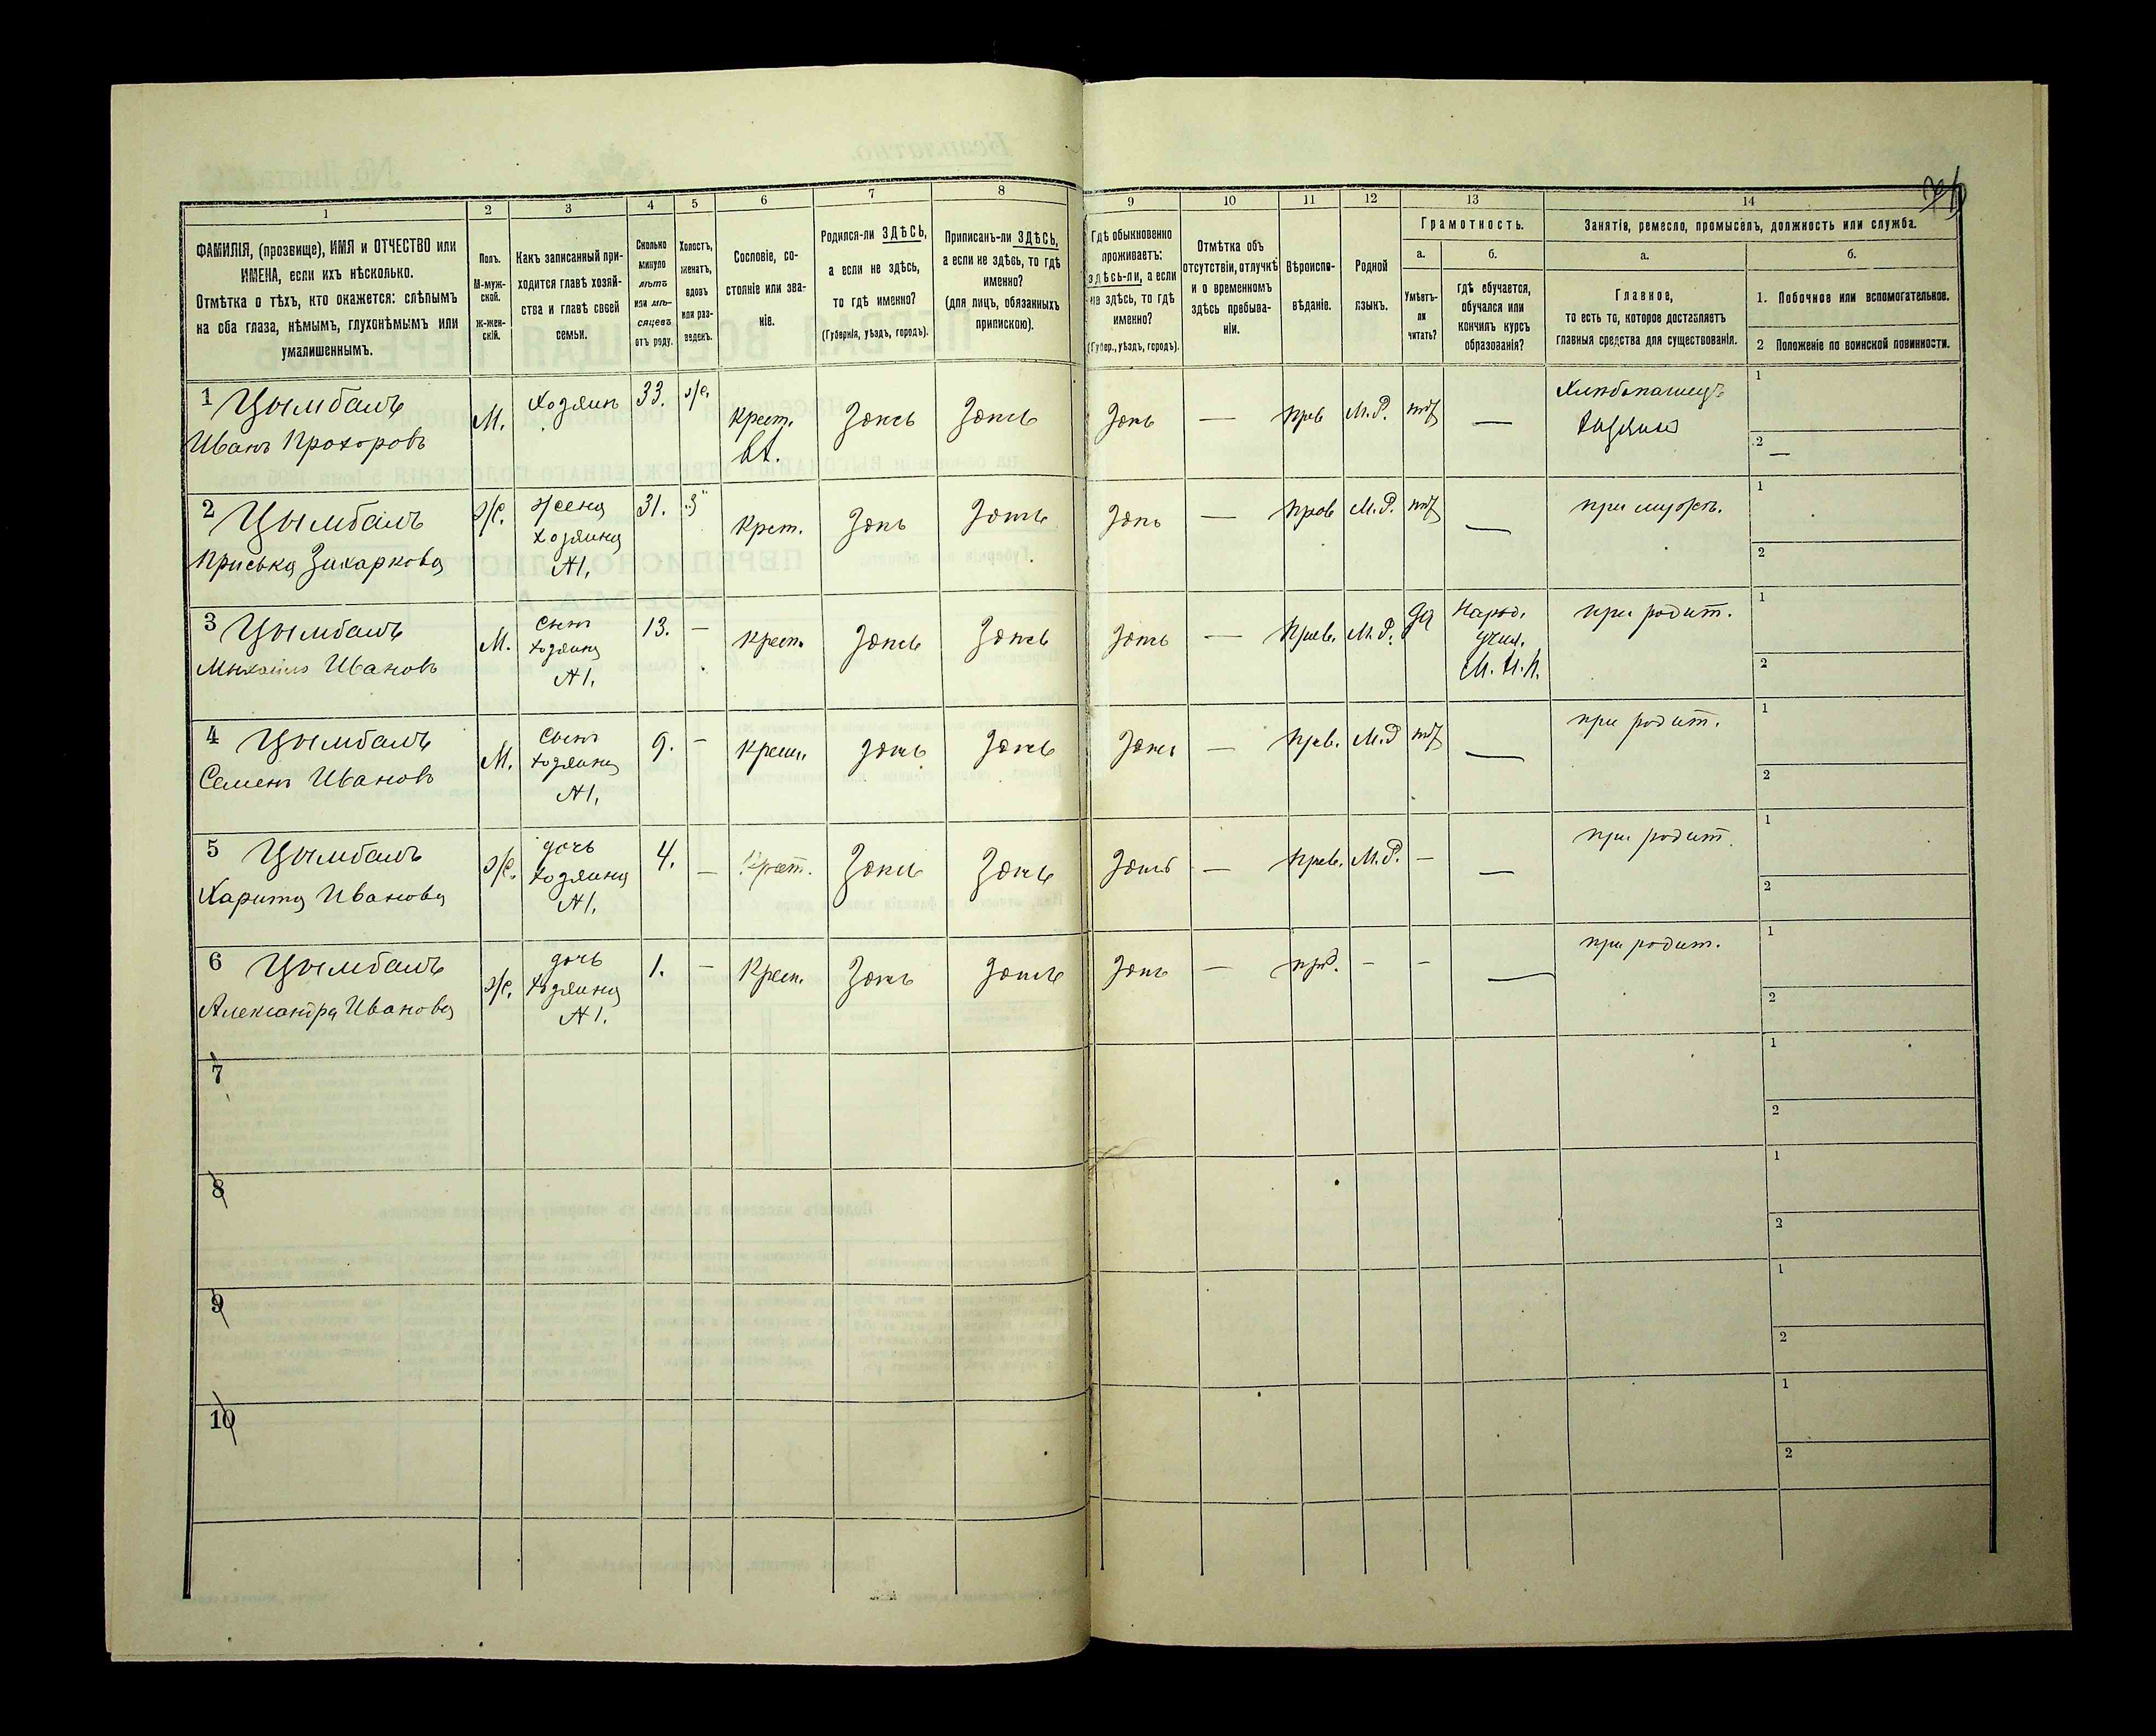 1
2
3
4
5
6
7
8
9
10
11
12
13
14
ФАМИЛІЯ, (прозвище), ИМЯ и ОТЧЕСТВО или
ИМЕНА, если ихъ нѣсколько.
Отмѣтка о тѣхъ, кто окажется: слѣпымъ
на оба глаза, нѣмымъ, глухонѣмымъ или
умалишеннымъ.
Полъ.
М-муж-
ской.
ж-жен-
скій.
Какъ записанный при-
ходится главѣ хозяй-
ства и главѣ своей
семьи.
Сколько
минуло
лѣтъ
или мѣ-
сяцевъ
отъ роду.
Холостъ,
женатъ,
вдовъ
или раз-
веденъ.
Сословіе, со-
стояніе или зва-
ніе.
Родился-ли ЗДѢСЬ,
а если не здѣсь,
то гдѣ именно?
(Губернія, уѣздъ, городъ).
Приписанъ-ли ЗДѢСЬ,
а если не здѣсь, то гдѣ
именно?
(для лицъ, обязанныхъ
припискою).
Гдѣ обыкновенно
проживаетъ:
здѣсь-ли, а если
не здѣсь, то гдѣ
именно?
(Губер., уѣздъ, городъ).
Отмѣтка объ
отсутствіи, отлучкѣ
и о временномъ
здѣсь пребыва-
ніи.
Вѣроиспо-
вѣданіе.
Родной
языкъ.
Грамотность.
а.
Умѣетъ-
ли
читать?
б.
гдѣ обучается,
обучался или
кончилъ курсъ
образованія?
Занятіе, ремесло, промыселъ, должность или служба.
а.
Главное,
то есть то, которое доставляетъ
главныя средства для существованія.
б.
1. Побочное или вспомогательное.
2 Положеніе по воинской повинности.
1 Цымбалъ
Иванъ Прохоровъ
М. Хозяинъ 33. ж. Крест. Здѣсь Здѣсь Здѣсь — прав М.Р. нѣт —
Хлѣбопашецъ
хозяинъ
1
2 —
2 Цымбалъ
Приська Захаркова
Ж. жена
хозяина
№1.
31. З Крест. Здѣсь Здѣсь Здѣсь — прав М.Р. нѣт — при мужѣ.
1
2
3 Цымбалъ
Михайло Ивановъ
М. сынъ
хозяина
№1.
13. — Крест. Здѣсь Здѣсь Здѣсь — Прав. М.Р. да
Народ.
учил.
М.Н.П.
при родит.
1
2
4 Цымбалъ
Семенъ Ивановъ
М. сынъ
хозяина
№1.
9. — Крест. Здѣсь Здѣсь Здѣсь — прав. М.Р нѣт — при родит.
1
2
5 Цымбалъ
Харита Иванова
Ж. дочь
хозяина
№1.
4. — Крест. Здѣсь Здѣсь Здѣсь — прав. М.Р. — — при родит.
1
2
6 Цымбалъ
Александра Иванова
Ж. дочь
хозяина
№1.
1. — Крест. Здѣсь Здѣсь Здѣсь — пр. — — — при родит.
1
2
7
1
2
8
1
2
9
1
2
10
1
2